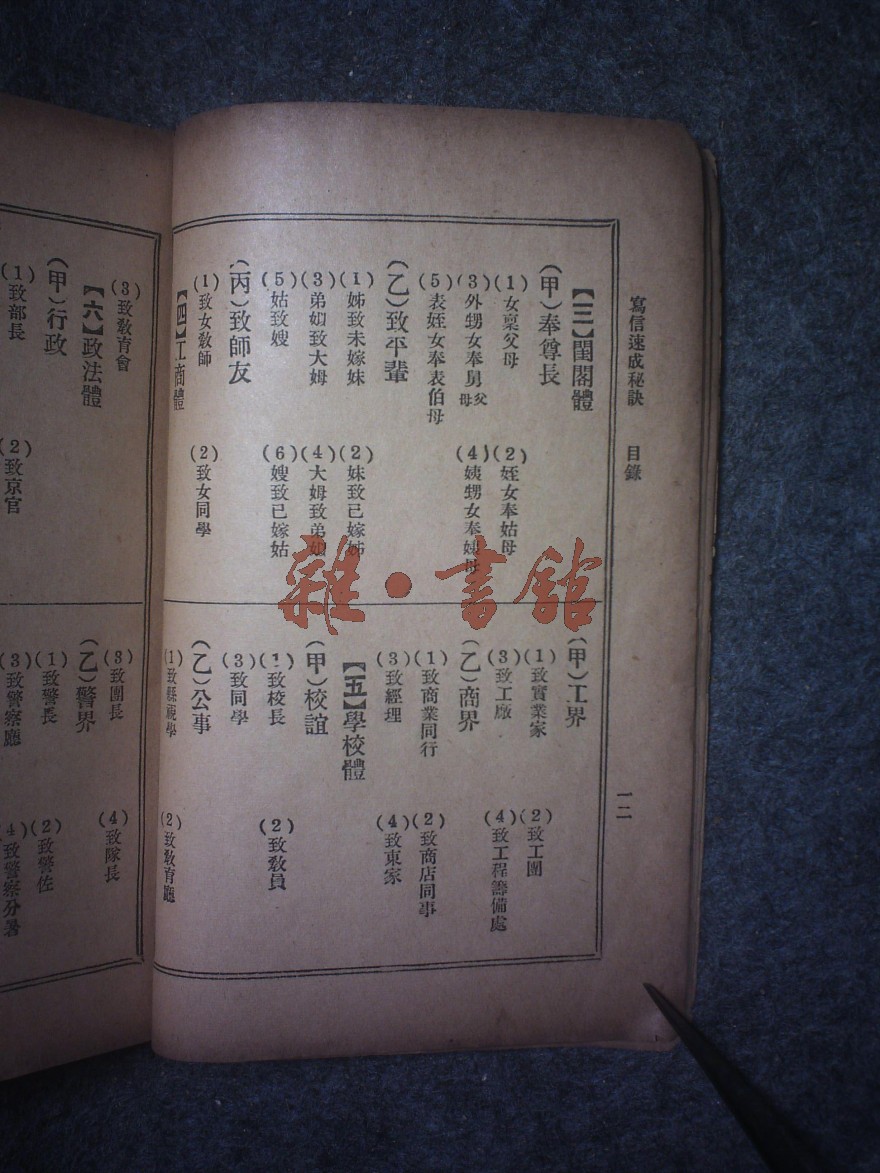 寫信速成秘訣 目錄 一二
【三】閨閣體
(甲)奉尊長
(1)女稟父母
(2)姪女奉姑母
(3)外甥女奉舅父母
(4)姨甥女奉姨母
(5)表姪女奉表伯母
(乙)致平輩
(1)姊致未嫁妹
(2)妹致已嫁姊
(3)弟姒致大姆
(4)大姆致弟姒
(5)姑致嫂
(6)嫂致已嫁姑
(丙)致師友
(1)致女敎師
(2)致女同學
【四】工商體
(甲)工界
(1)致實業家
(2)致工團
(3)致工廠
(4)致工程籌備處
(乙)商界
(1)致商業同行
(2)致商店同事
(3)致經理
(4)致東家
【五】學校體
(甲)校誼
(1)致校長
(2)致敎員
(3)致同學
(乙)公事
(1)致縣視學
(2)致敎育廳
(3)致敎育會
【六】政法體
(甲)行政
(1)致部長
(2)致京官
(3)致團長
(4)致隊長
(乙)警界
(1)致警長
(2)致警佐
(3)致警察廳
(4)致警察分署
雜·書館